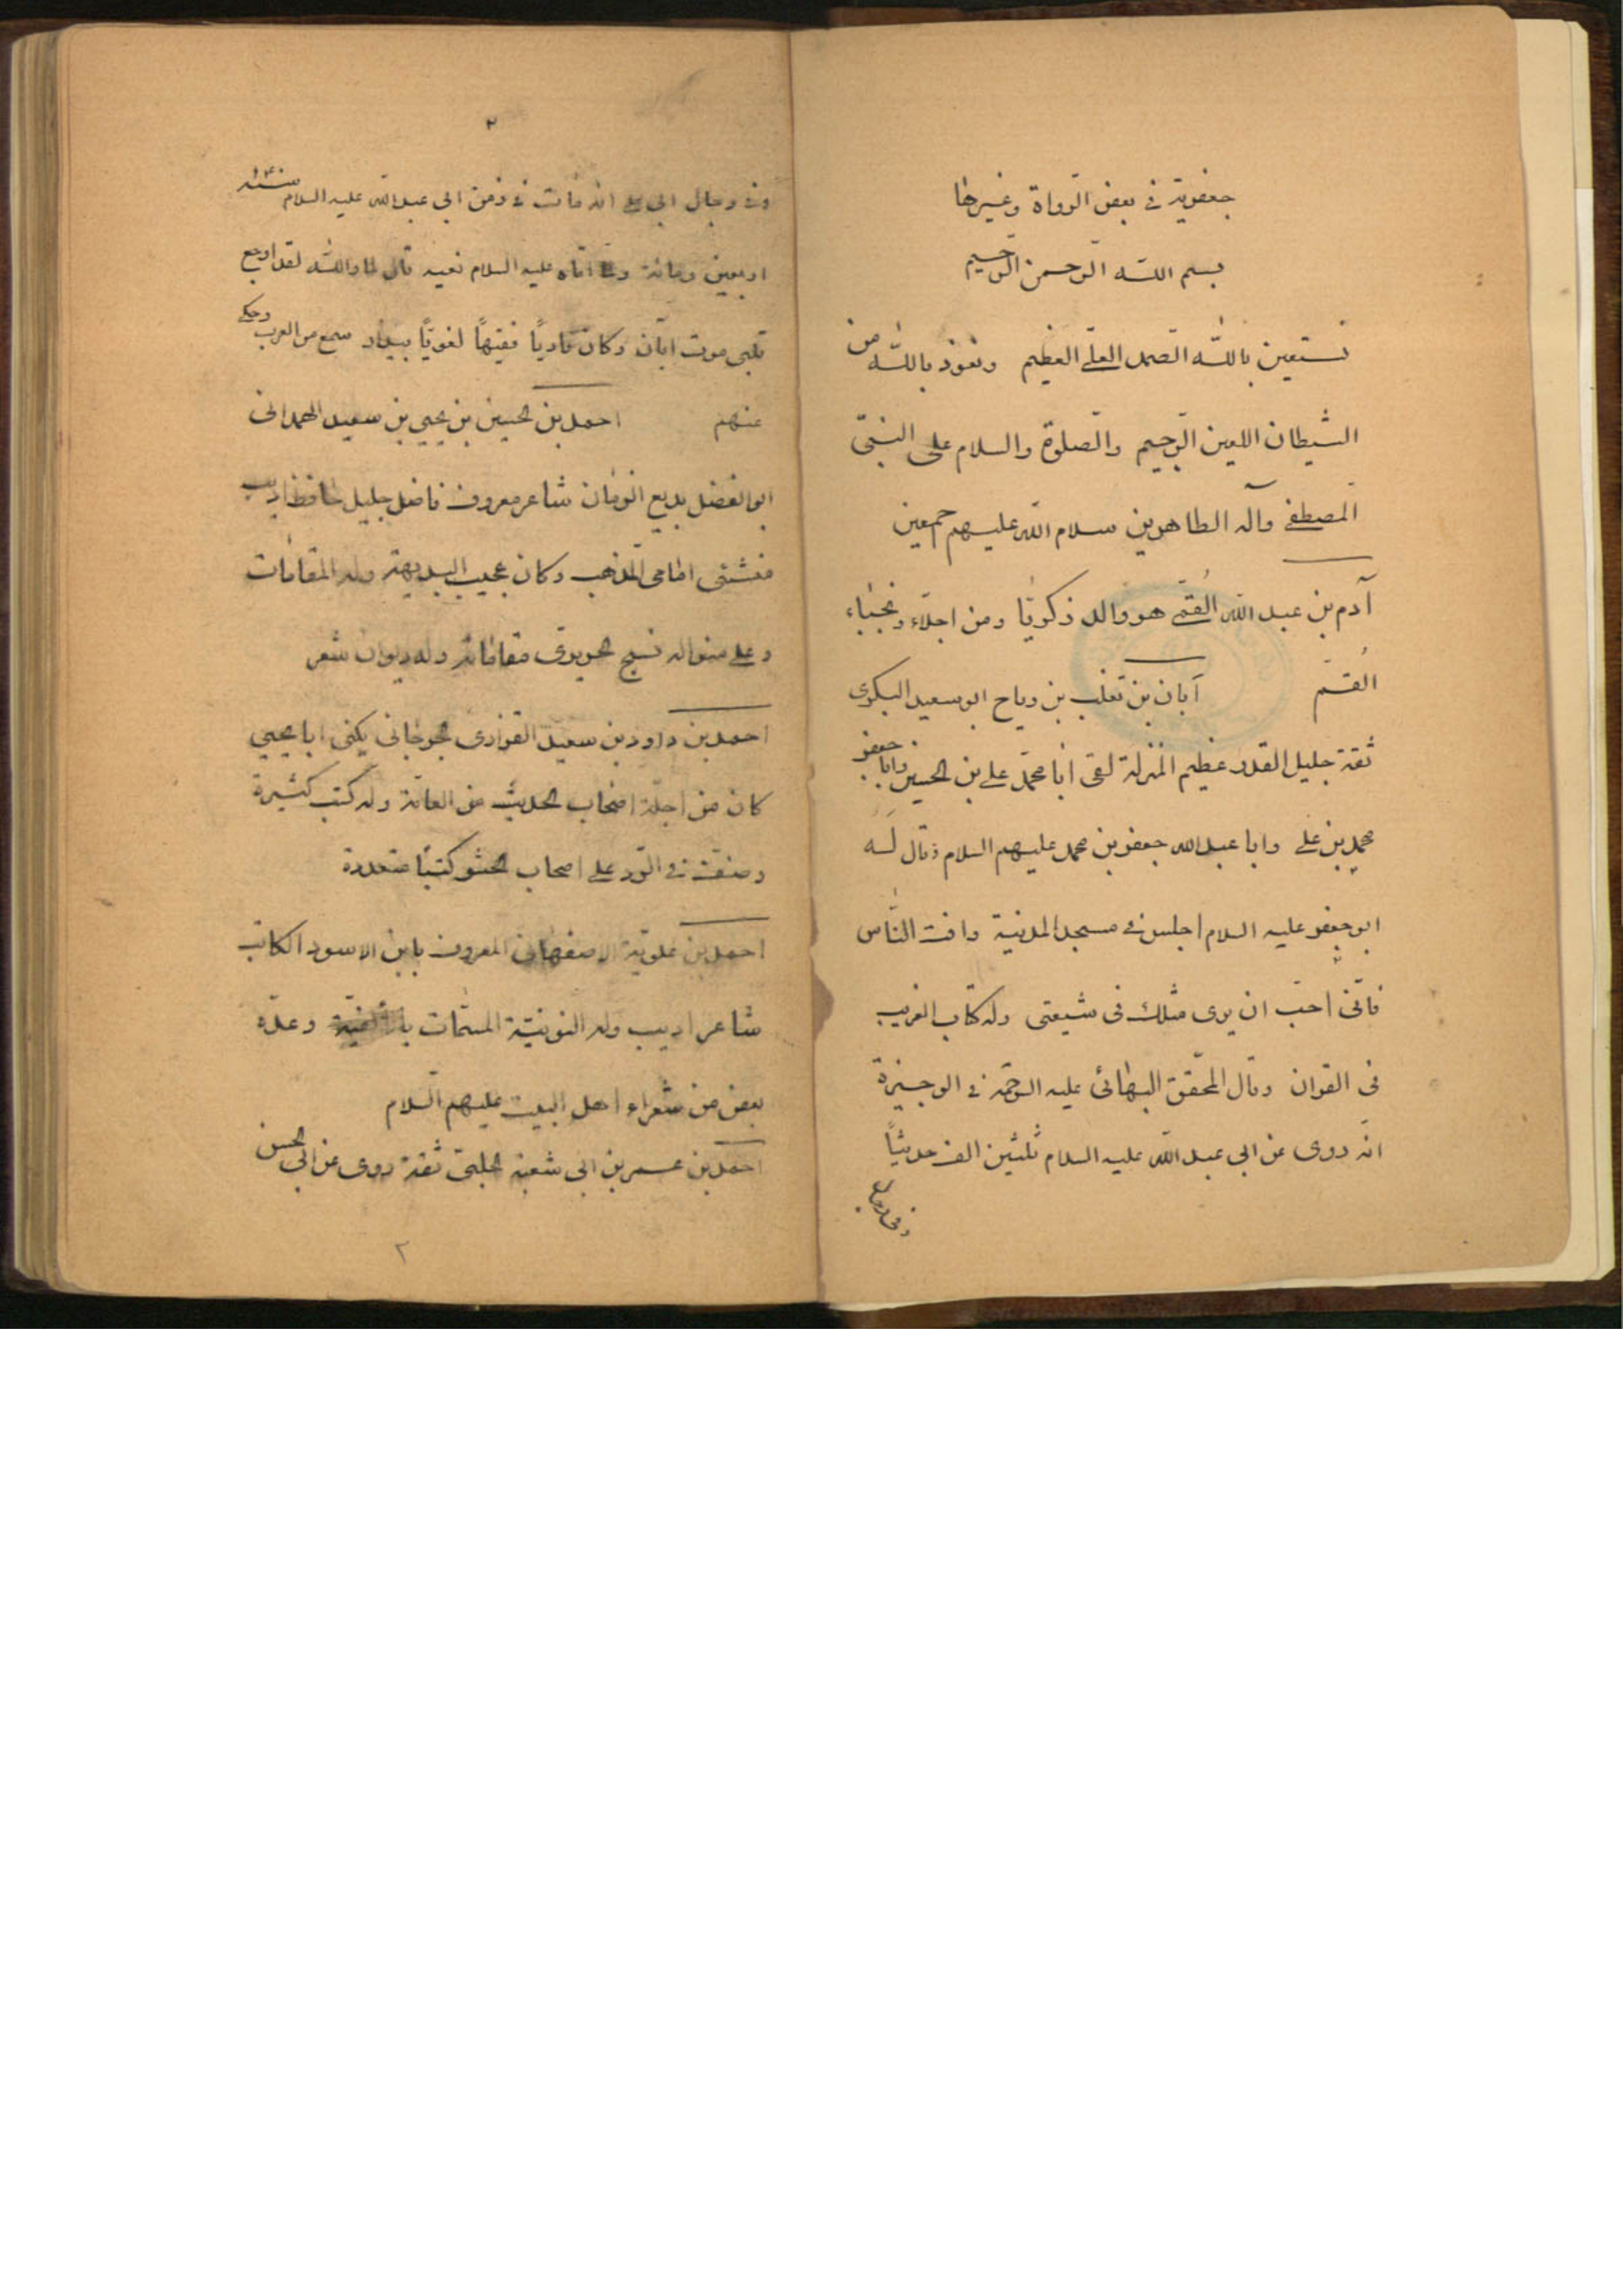 جعفرية في بعض الرواة وغيرها
بسم الله الرحمن الرحيم
نستعين بالله الصمد العلي العظيم ونعوذ بالله من
الشيطان اللعين الرجيم والصلوة والسلام على النبي
المصطفى وآله الطاهرين سلام الله عليهم اجمعين
آدم بن عبد الله القمي هو والد زكريا ومن اجلاء ونجباء
القم أبان بن تغلب بن رياح ابو سعيد البكرى
ثقة جليل القدر عظيم المنزلة لقى ابا محمد علي بن الحسين وابا جعفر
محمد بن علي وابا عبد الله جعفر بن محمد عليهم السلام وقال له
ابو جعفر عليه السلام اجلس في مسجد المدينة وافت الناس
فاني احب ان يرى مثلك في شيعتى وله كتاب الغريب
في القران وقال المحقق البهائي عليه الرحمة في الوجيزة
انه روى عن ابي عبد الله عليه السلام ثلثين الف حديثاً
وفي رجال
٢
وفي رجال ابي علي انه مات في زمن ابي عبد الله عليه السلام سنة ١٤٠
اربعين ومائة ولما اتاه عليه السلام نعيه قال اما والله لقد اوجع
قلبى موت ابان وكان قارياً فقيهاً لغوياً سمع من العرب وحكى
عنهم احمد بن الحسين بن يحيى بن سعيد الهمدانى
ابو الفضل بديع الزمان شاعر معروف فاضل جليل حافظ اديب
منشئ امامى المذهب وكان عجيب البديهة وله المقامات
وعلى منواله نسج الحريرى مقاماته وله ديوان شعر
احمد بن داود بن سعيد الفزارى الجرجانى يكنى ابا يحيى
كان من اجلة اصحاب الحديث من العامة وله كتب كثيرة
وصنف في الرد على اصحاب الحشو كتباً متعددة
احمد بن علوية الاصفهانى المعروف بابن الاسود الكاتب
شاعر اديب وله النونية المسمات بالالفية وعده
بعض من شعراء اهل البيت عليهم السلام
احمد بن عمر بن ابى شعبة الحلبى ثقة روى عن ابى الحسن
٢